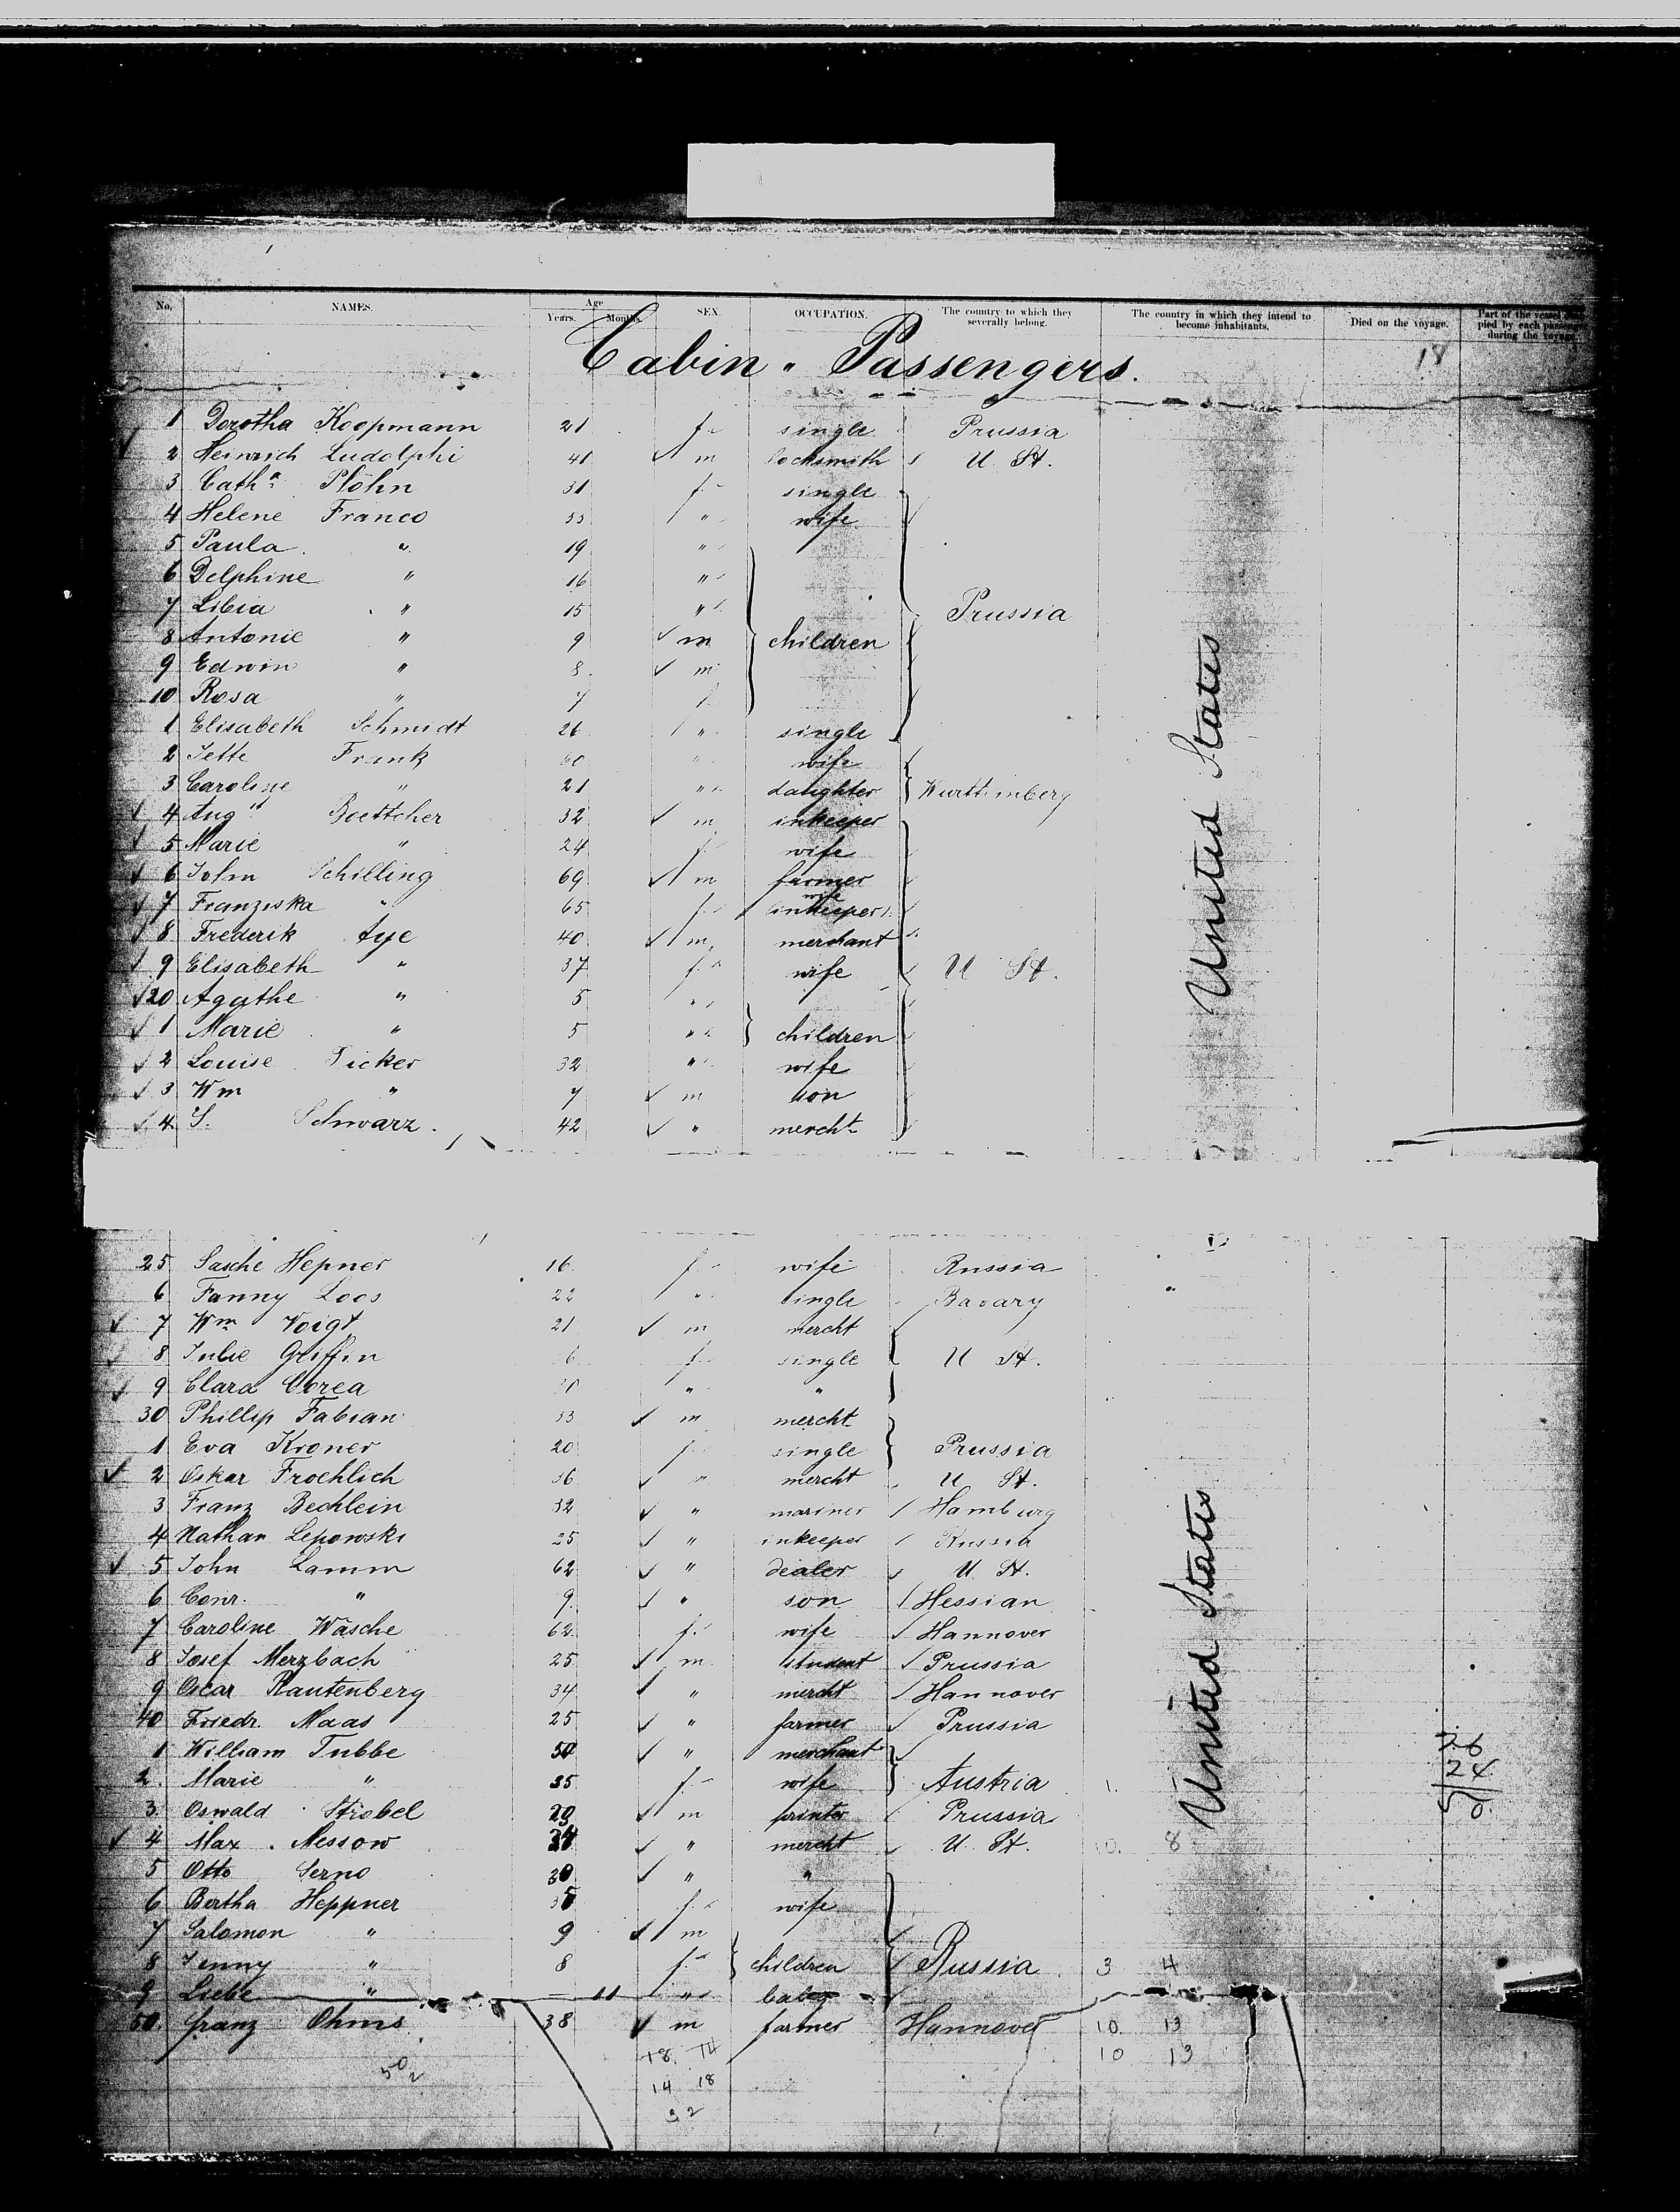 No. NAMES. Age Years. Months. SEX. OCCUPATION. The country to which they severally belong. The country in which they intend to become inhabitants. Died on the voyage. Part of the vessel pied by each passenger during the voyage.
Cabin " Passengers.
18
1 Dorotha Koopmann 21 f. single Prussia
2 Heinrich Ludolphi 41 m locksmith U. St.
3 Cath.a Plöhn 31 f. single
4 Helene Franco " wife
5 Paula " 19 "
6 Delphine " 16 "
7 Libia " 15 " Prussia
8 Antonie " 9 m children
9 Edwin " 8 m
10 Rosa " 7 f.
1 Elisabeth Schmidt 26 " single
2 Jette Frank 60 " wife
3 Caroline " 21 " daughter Württemberg
4 Augst Boettcher 32 m inkeeper
5 Marie " 24 f. wife
6 John Schilling 69 m farmer
7 Franziska " 65 f. inkeepers wife
8 Frederik Aye 40 m merchant
9 Elisabeth " 37 f. wife U St.
20 Agathe " 5 "
1 Marie " 5 " children
2 Louise Ticker 32 " wife
3 Wm " 7 m son
4 S. Schwarz. 42 " mercht
United States
25 Sasche Hepner 16 f. wife Russia
6 Fanny Loos 22 " single Bavary
7 Wm Voigt 21 m mercht
8 Julie Griffin f. single U St.
9 Clara Correa " "
30 Phillip Fabian 33 m mercht
1 Eva Kroner 20 f. single Prussia
2 Oskar Froehlich 36 " mercht U St.
3 Franz Bechlein 32 " mariner Hamburg
4 Nathan Lepowski 25 " inkeeper Russia
5 John Lamm 62 " dealer U. St.
6 Conr. " 9 " son Hessian
7 Caroline Wäsche 62 f. wife Hannover
8 Josef Merzbach 25 m student Prussia
9 Oscar Rautenberg 34 " mercht Hannover
40 Friedr. Maas 25 " farmer Prussia
1 William Tubbe 50 " merchant
2. Marie " 35 f. wife Austria 1.
3. Oswald Strobel 29 m printer Prussia
4 Max Messow 24 " mercht U. St. 10. 8
5 Otto Serno 30 " "
6 Bertha Heppner 35 f. wife
7 Salomon " 9 m
8 Jenny " 8 f. children Russia 3 4
9 Liebe " — 11 " baby
50 Franz Ohms 38 m farmer Hannover 10. 13
United States
26
24
50
18. 14 10 13
50/2
14 18
32